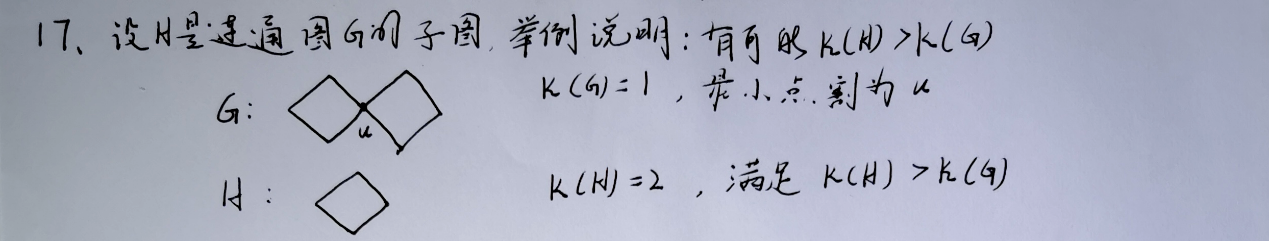 17、设H是连通图G的子图,举例说明:有可能k(H)>k(G)
G: u k(G)=1,最小点割为u
H: k(H)=2,满足k(H)>k(G)